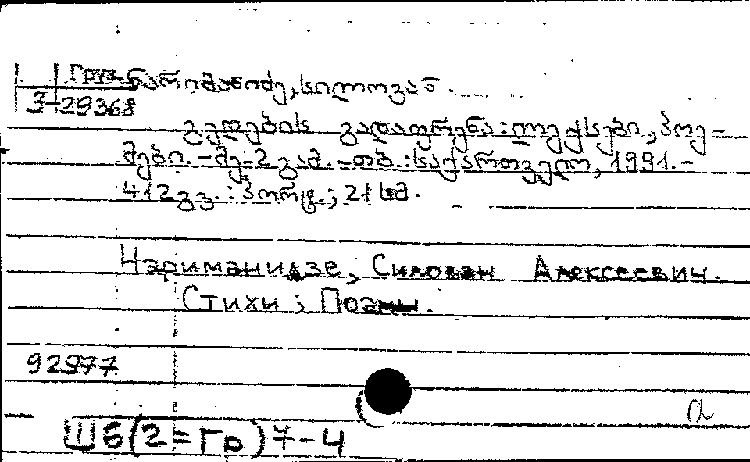 Груз.
3-29368
ნარიმანიძე, სილოვან.
გედების გადაფრენა : ლექსები, პოე-
მები. - მე-2 გამ. - თბ. : საქართველო, 1991. -
412 გვ. : პორტ. ; 21 სმ.
Нариманидзе, Силован Алексеевич.
Стихи ; Поэмы.
92977
Ш6(2=Гр)7-4